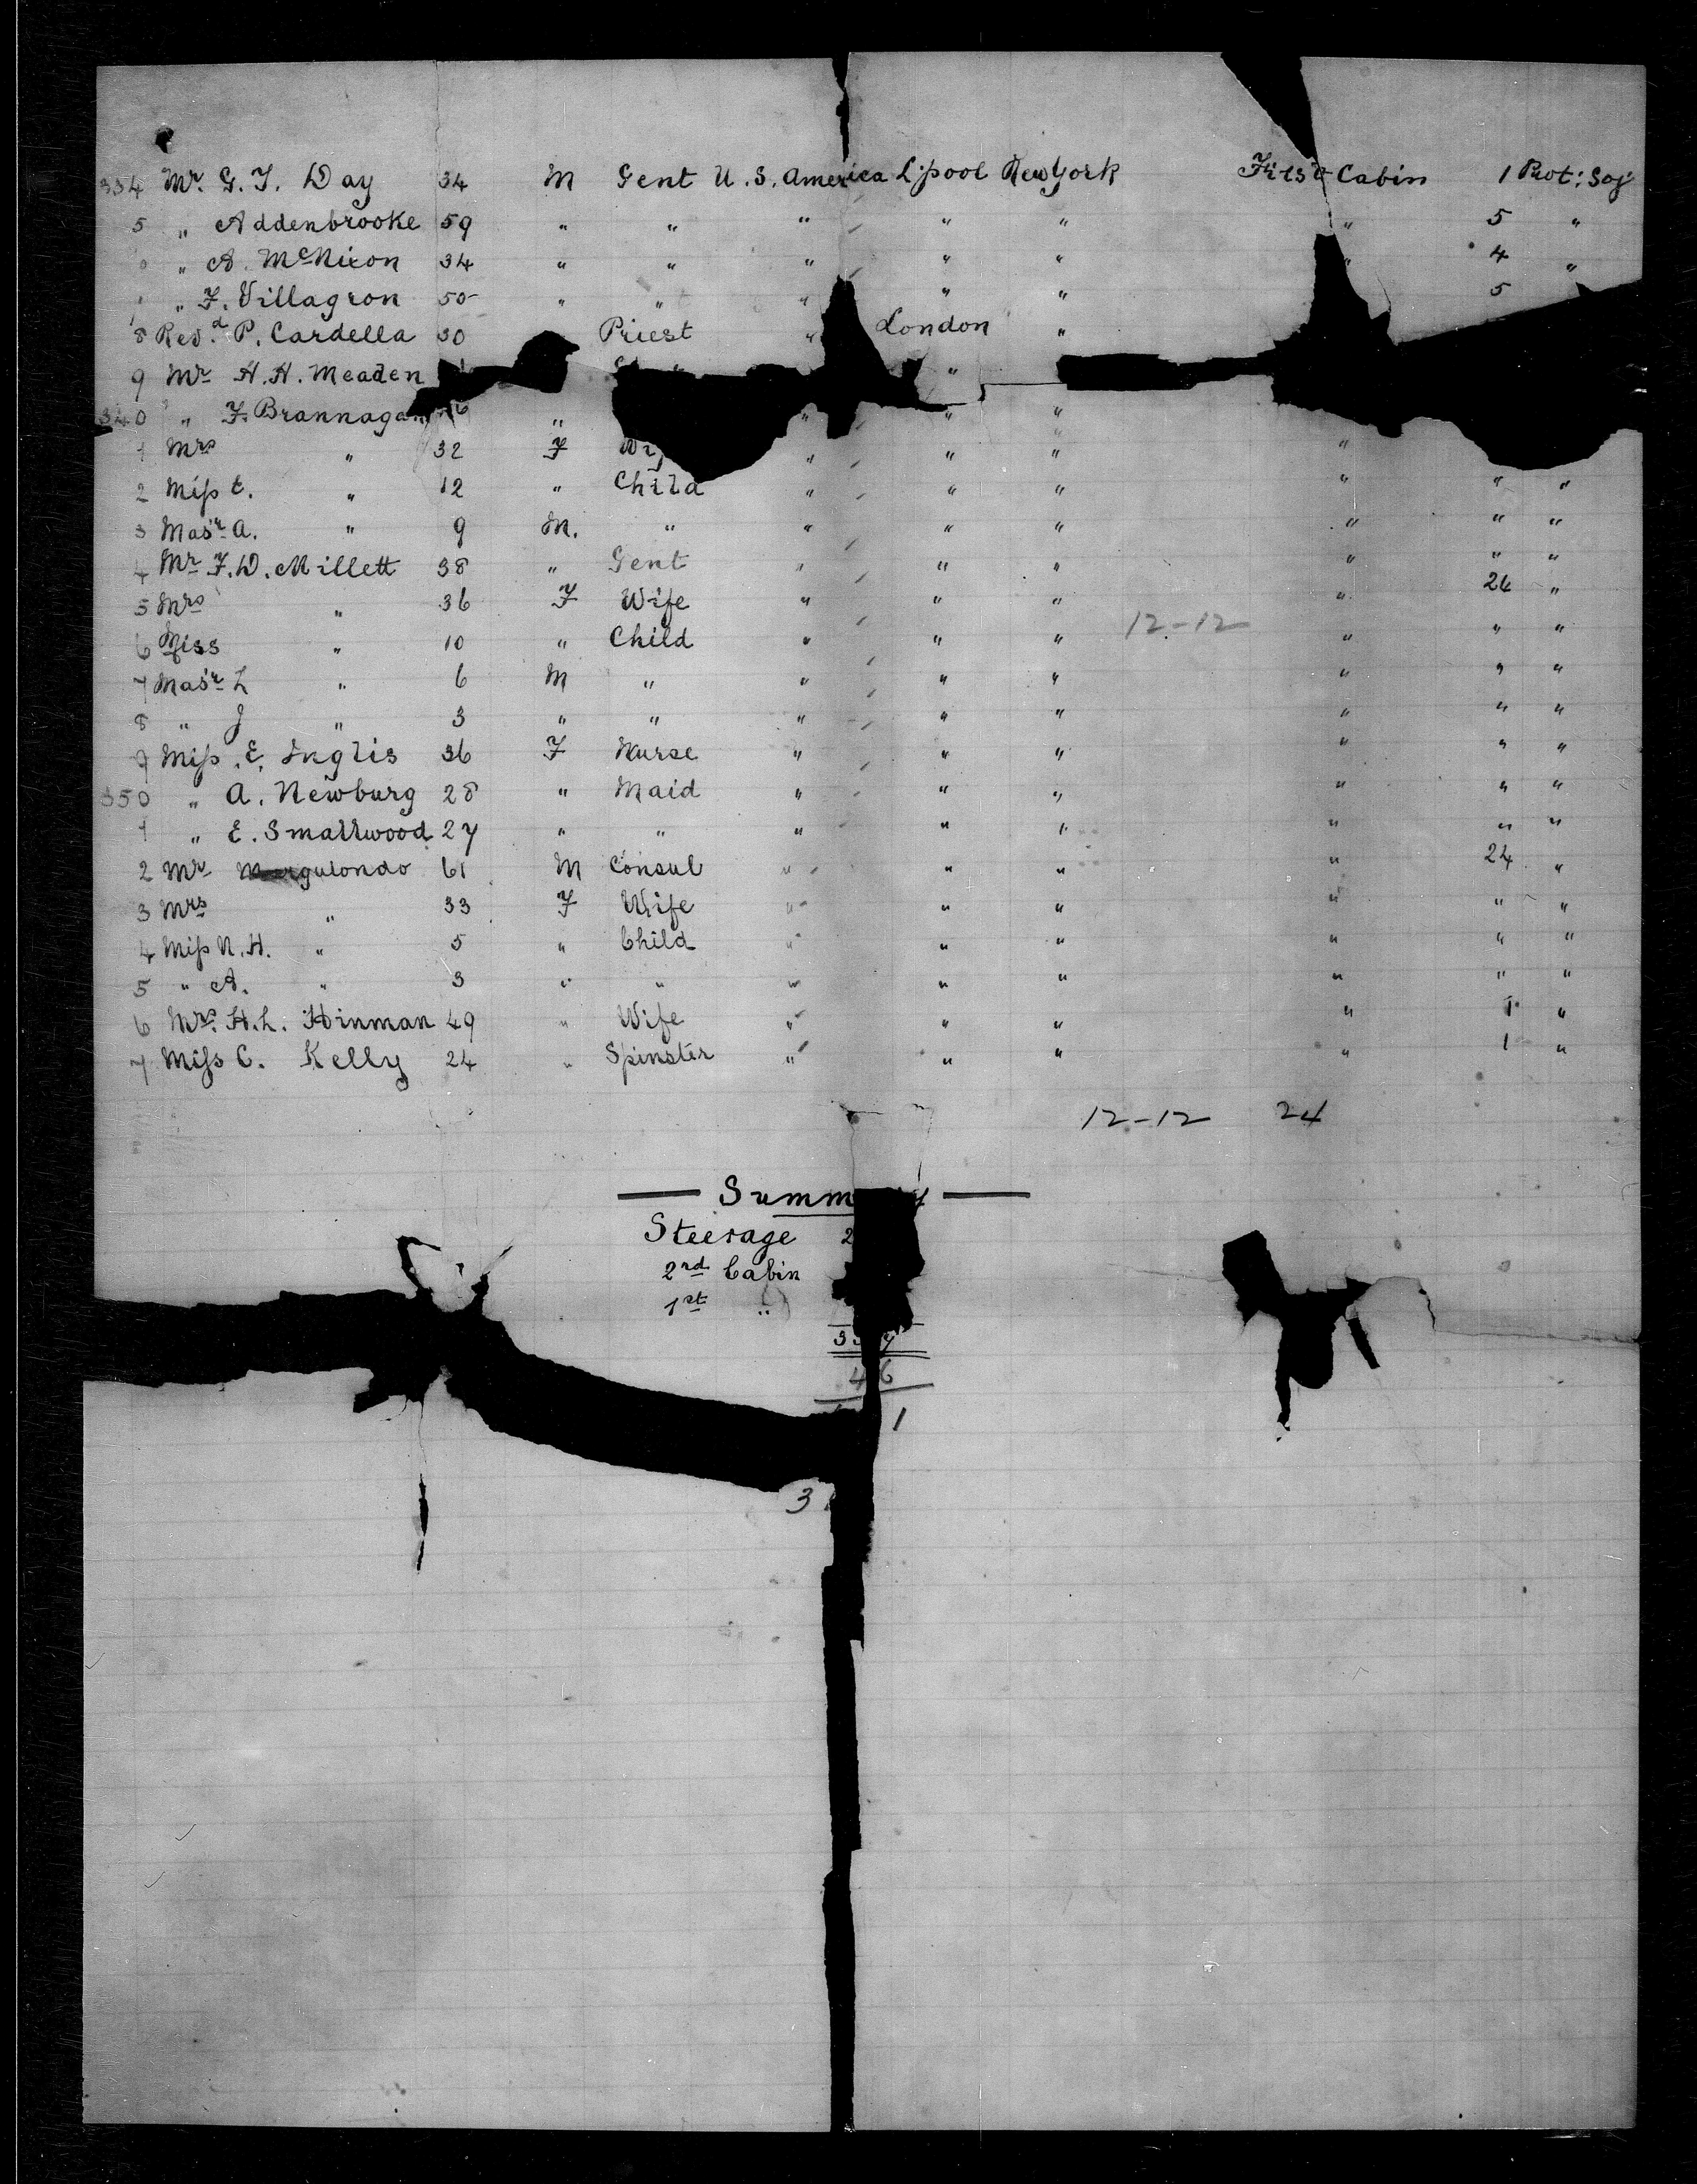 334 Mr. G. T. Day 34 M Gent U.S. America L'pool New York First Cabin 1 Prot: Soj
5 " Addenbrooke 59 " " " " " " 5 "
" A. McNixon 34 " " " " " " 4 "
" F. Villagron 50 " " " " " 5
8 Revd. P. Cardella 30 Priest " London "
9 Mr H. H. Meaden "
340 " F. Brannagan 6 " " " "
1 Mrs " 32 F Wif " " " "
2 Miss C. " 12 " Child " " " " " "
3 Masr A. " 9 M. " " " " " " "
4 Mr F. D. Millett 38 " Gent " " " " " "
5 Mrs " 36 F Wife " " " " 24 "
6 Miss " 10 " Child " " " 12-12 " " "
7 Masr L " 6 M " " " " " " "
8 " J " 3 " " " " " " " "
9 Miss E. Inglis 36 F Nurse " " " " " "
350 " A. Newburg 28 " Maid " " " " " "
1 " E. Smallwood 27 " " " " " " " "
2 Mr 61 M Consul " " " " 24 "
3 Mrs " 33 F Wife " " " " " "
4 Miss N. H. " 5 " Child " " " " " "
5 " A. " 3 " " " " " " " "
6 Mrs. H. L. Hinman 49 " Wife " " " " 1 "
7 Miss C. Kelly 24 " Spinster " " " " 1 "
12-12 24
Summ y
Steerage 2
2nd Cabin
1st "
3 7
4 6
1
3